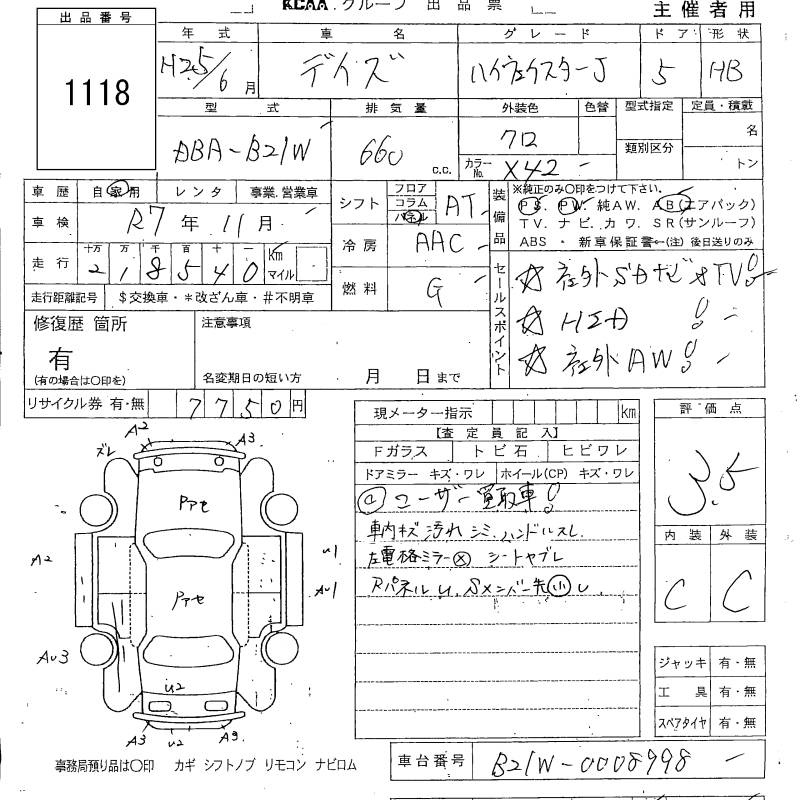 KCAA グループ 出品票
主催者用
出品番号
1118
年式 車名 グレード ドア 形状
H25/6月 デイズ ハイウェイスターJ 5 HB
型式 排気量 外装色 色替 型式指定 定員・積載
DBA-B21W 660 c.c. クロ 類別区分 名
カラーNo. X42 トン
車歴 自家用 レンタ 事業.営業車
車検 R7年11月
走行 十万 万 千 百 十 一 km マイル
2 1 8 5 4 0
走行距離記号 $交換車・*改ざん車・#不明車
シフト フロア コラム パネル AT
冷房 AAC
燃料 G
装備品 ※純正のみ○印をつけて下さい。
PS. PW. 純AW. AB(エアバック)
TV. ナビ. カワ. SR(サンルーフ)
ABS ・ 新車保証書←(注) 後日送りのみ
セールスポイント
☆ 社外SDナビ*TV!
☆ HID !
☆ 社外AW!
修復歴 箇所
有
(有の場合は○印を)
注意事項
名変期日の短い方 月 日まで
リサイクル券 有・無 7750円
現メーター指示 km
【査定員記入】
Fガラス トビ石 ヒビワレ
ドアミラー キズ・ワレ ホイール(CP) キズ・ワレ
ユーザー買取車!
車内キズ汚れ シミ.ハンドルスレ
左電格ミラー(×) シートヤブレ
RパネルU. Sメンバー先(小)U.
評価点
3.5
内装 外装
C C
ジャッキ 有・無
工具 有・無
スペアタイヤ 有・無
A2 A3
ズレ
Pアセ
A2 U1
Pアセ AU1
AU3
U2
A3 U2 A3
事務局預り品は○印 カギ シフトノブ リモコン ナビロム
車台番号 B21W-0008998